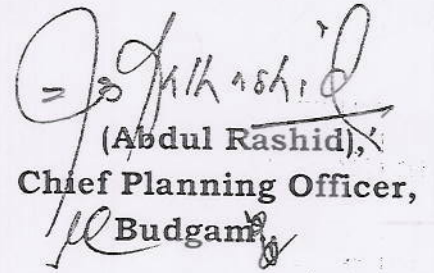 (Abdul Rashid),
Chief Planning Officer,
Budgam